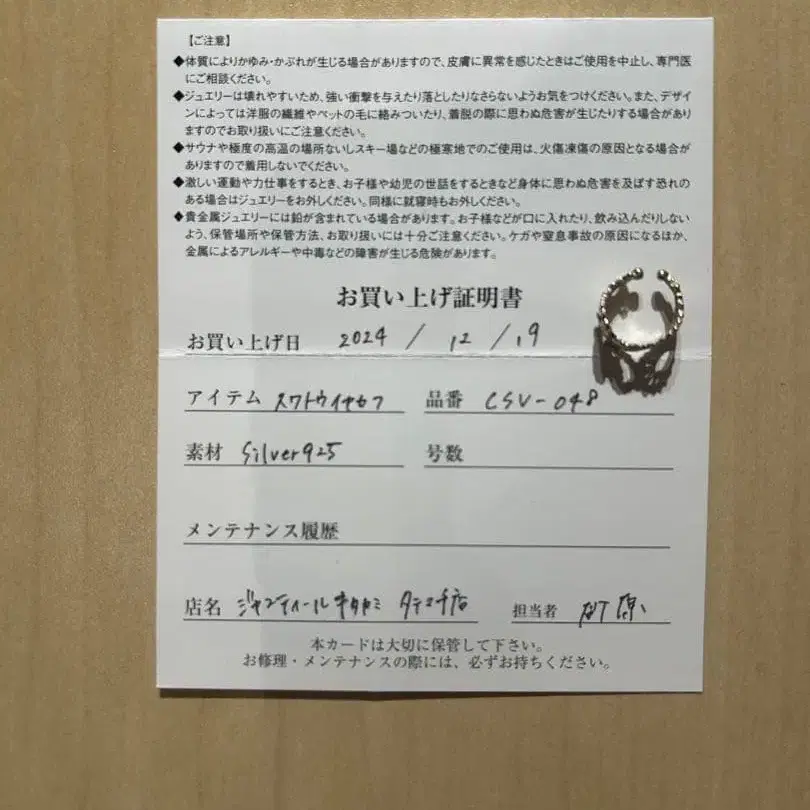 【ご注意】
◆体質によりかゆみ・かぶれが生じる場合がありますので、皮膚に異常を感じたときはご使用を中止し、専門医
にご相談ください。
◆ジュエリーは壊れやすいため、強い衝撃を与えたり落としたりなさらないようお気をつけください。また、デザイ
ンによっては洋服の繊維やペットの毛に絡みついたり、着脱の際に思わぬ危害が生じたりする場合があり
ますのでお取り扱いにご注意ください。
◆サウナや極度の高温の場所ないしスキー場などの極寒地でのご使用は、火傷凍傷の原因となる場合が
ありますので着用しないでください。
◆激しい運動や力仕事をするとき、お子様や幼児の世話をするときなど身体に思わぬ危害を及ぼす恐れの
ある場合はジュエリーをお外しください。同様に就寝時もお外しください。
◆貴金属ジュエリーには鉛が含まれている場合があります。お子様などが口に入れたり、飲み込んだりしない
よう、保管場所や保管方法、お取り扱いには十分ご注意ください。ケガや窒息事故の原因になるほか、
金属によるアレルギーや中毒などの障害が生じる危険があります。
お買い上げ証明書
お買い上げ日 2024 / 12 / 19
アイテム スワトウイヤカフ 品番 CSV-048
素材 Silver925 号数
メンテナンス履歴
店名 ジャンティール 店 担当者 原
本カードは大切に保管して下さい。
お修理・メンテナンスの際には、必ずお持ちください。